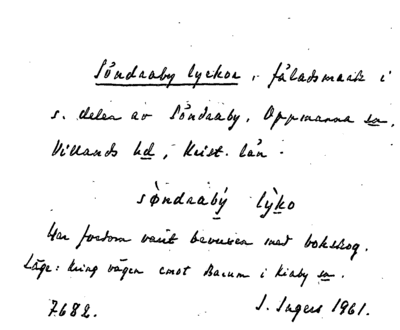 Söndraby lyckor, fäladsmark i
s. delen av Söndraby, Oppmanna sn,
Villands hd, Krist. län.
sǿndrabý lỳko
Har fordom varit bevuxen med bokskog.
Läge: kring vägen emot Bacum i Kiaby sn.
7682. I. Ingers 1961.